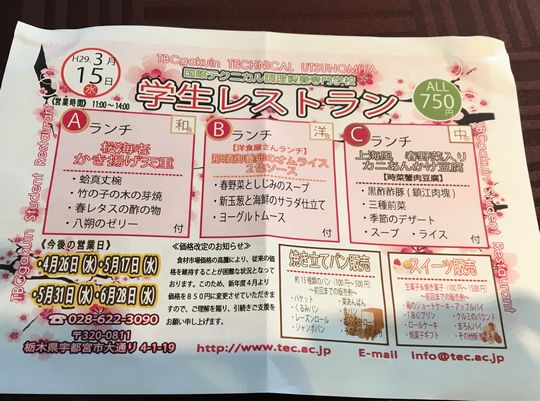 TBCgakuin TECHNICAL UTSUNOMIYA
国際テクニカル調理製菓専門学校
学生レストラン
H29.3月
15日
水
《営業時間》 11:00~14:00
ALL
750円
TBCgakuin Student Restaurant
TBCgakuin Student Restaurant
A ランチ 和
桜海老
かき揚げ天重
・蛤真丈椀
・竹の子の木の芽焼
・春レタスの酢の物
・八朔のゼリー
付
B ランチ 洋
【洋食屋さんランチ】
那須御養卵のオムライス
2色ソース
・春野菜としじみのスープ
・新玉葱と海鮮のサラダ仕立て
・ヨーグルトムース
付
C ランチ 中
上海風 春野菜入り
カニあんかけ豆腐
【時菜蟹肉豆腐】
・黒酢酢豚(鎮江肉塊)
・三種前菜
・季節のデザート
・スープ ・ライス
付
《今後の営業日》
・4月26日(水)・5月17日(水)
・5月31日(水)・6月28日(水)
☎028-622-3090
〒320-0811
栃木県宇都宮市大通り 4-1-19
<価格改定のお知らせ>
食材市場価格の高騰により、従来の価
格を維持することが困難な状況となって
おります。このため、新年度4月より
価格を850円に変更させていただきま
すので、ご理解を賜り、引続きご支援を
お願い申し上げます。
焼き立てパン販売
約13種類のパン(100円~500円)
~前回までの販売例~
・バケット ・栗あんぱん
・くるみパン ・食パン
・レーズンロール
・ジャンボパン
スイーツ販売
生菓子&焼き菓子(100円~1500円)
~前回までの販売例~
・苺のショートケーキ・アップルパイ
・TBCプリン ・クルミのパウンド
・ロールケーキ ・まろんパイ
・焼菓子ギフト ・その他新
http://www.tec.ac.jp E-mail info@tec.ac.jp